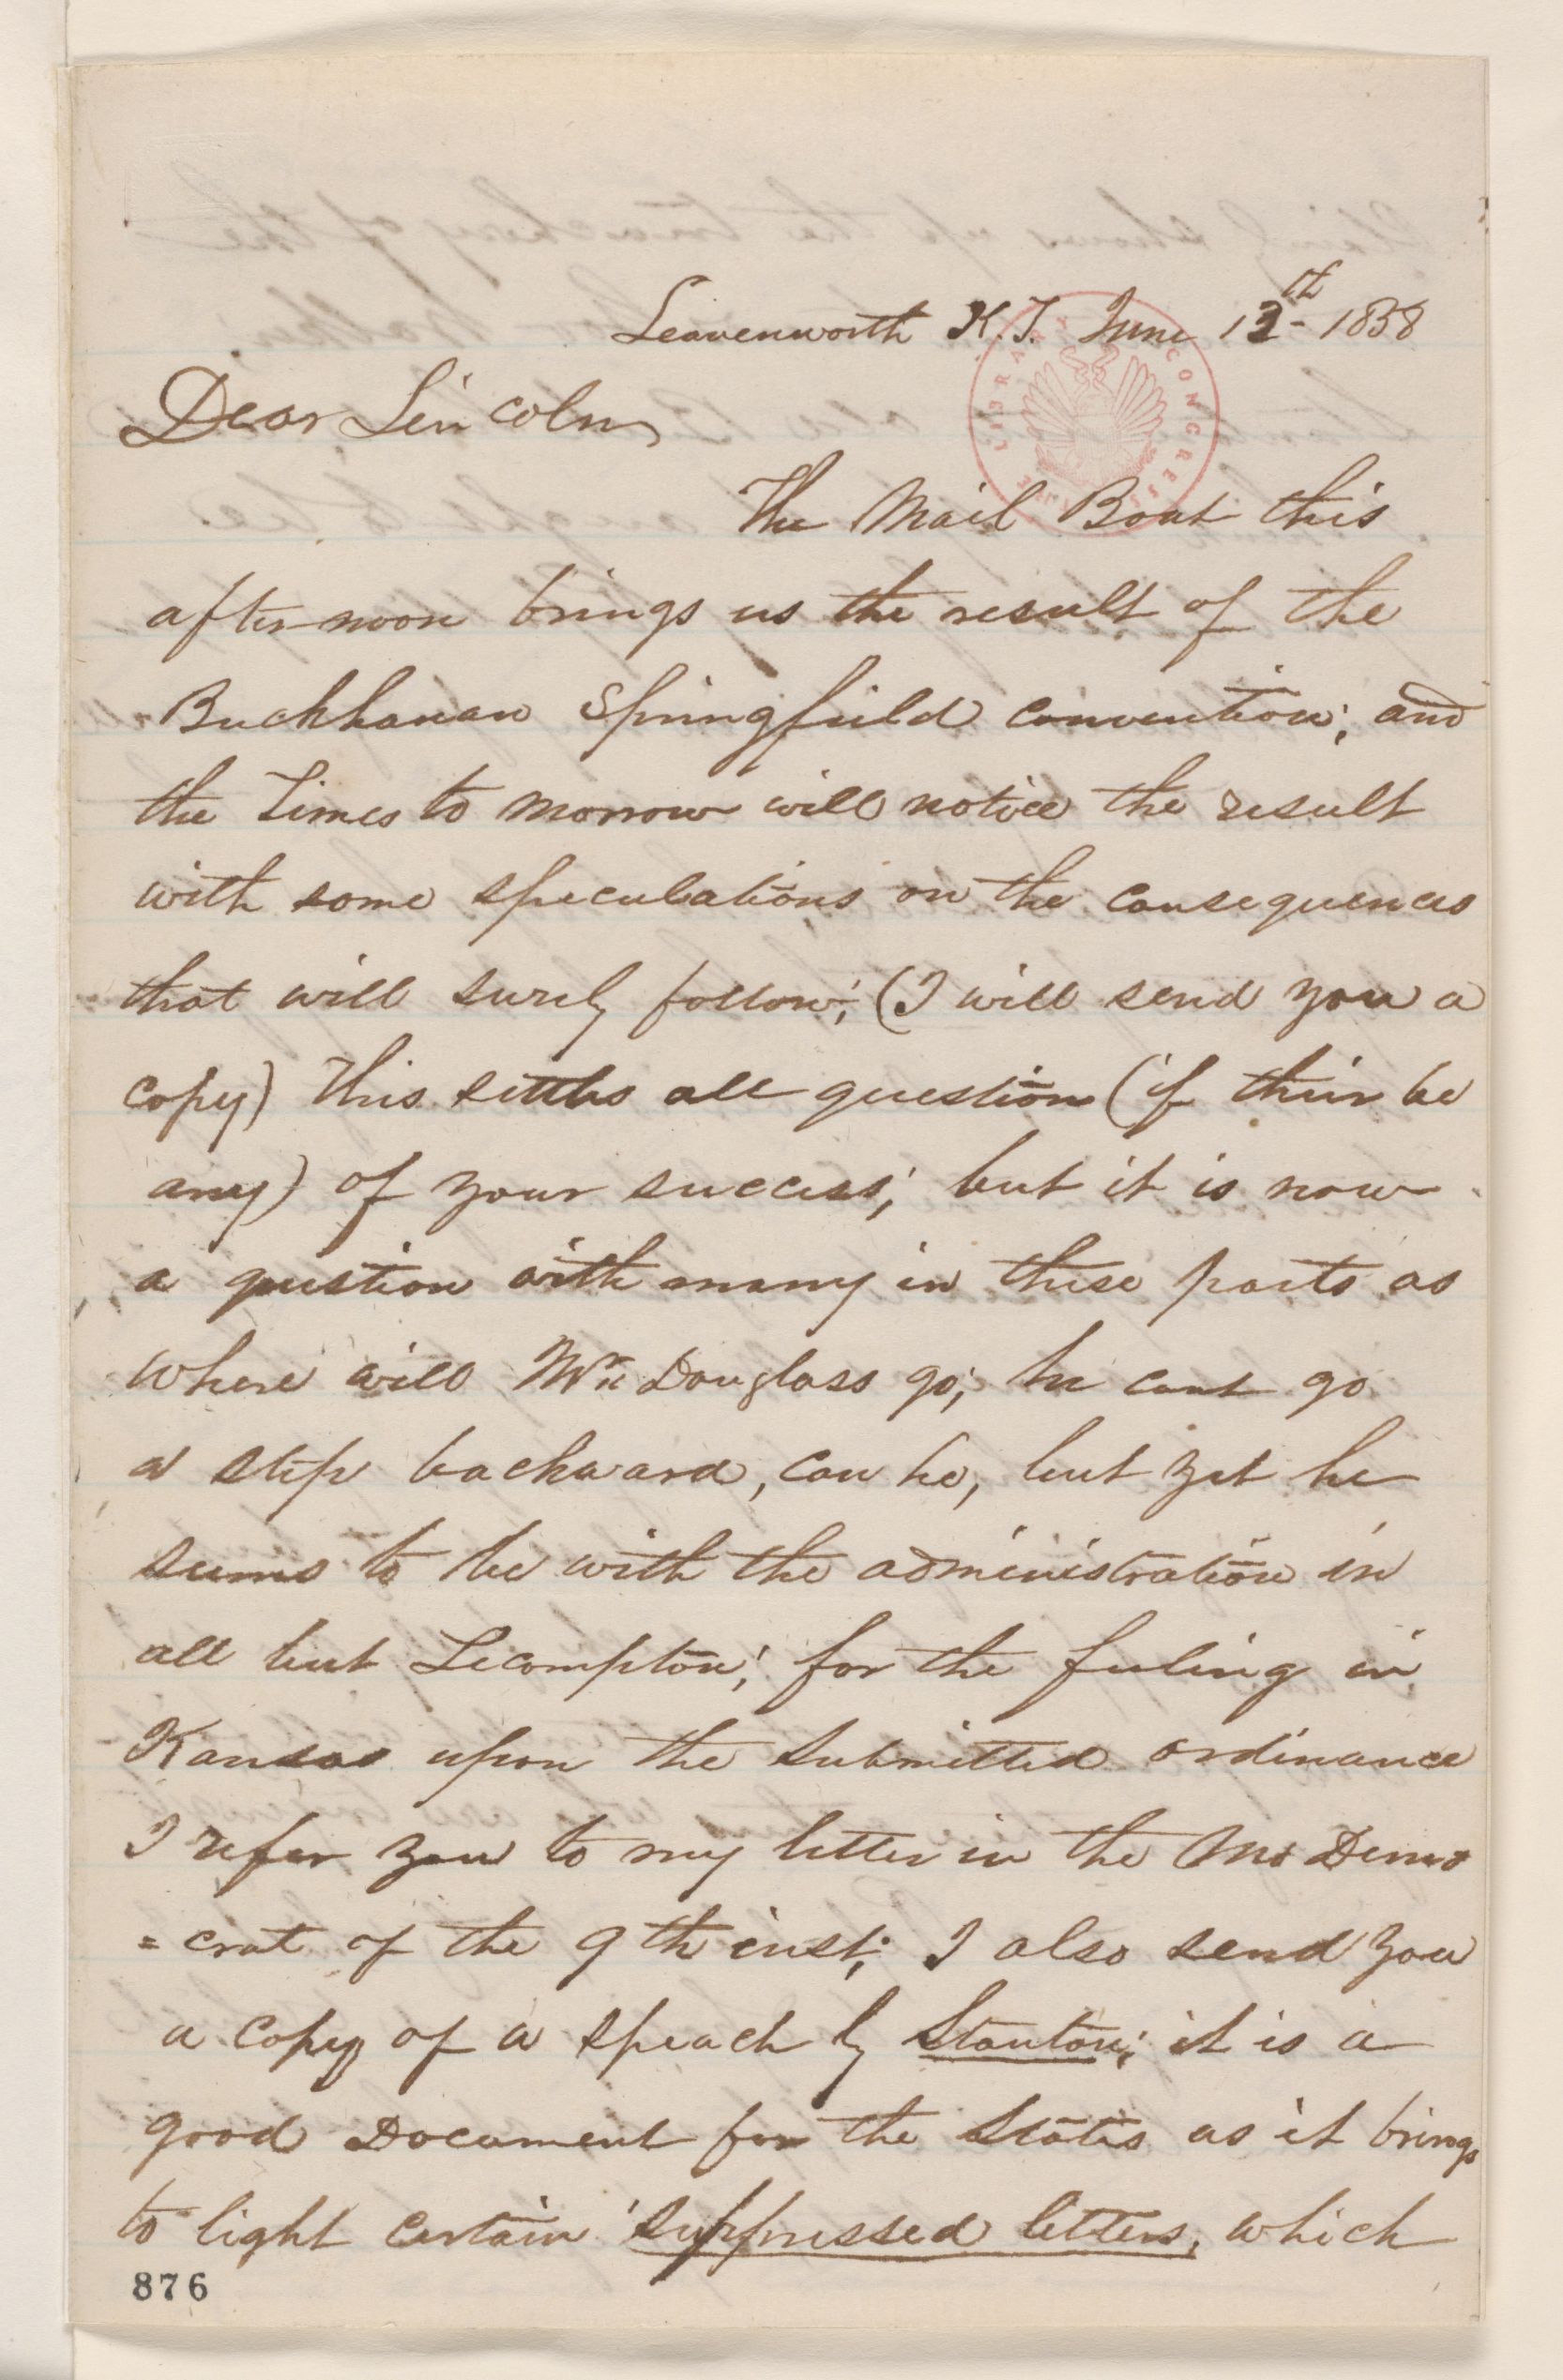 Leavenworth K.T. June 12th- 1858
Dear Lincoln,
The Mail Boat this
afternoon brings us the result of the
Buckhanan Springfield convention; and
the Times to morrow will notice the result
with some speculations on the consequences
that will surely follow; (I will send you a
copy) This settles all question (if their be
any) of your success; but it is now
a question with many in these parts as
where will Mr Douglass go; he cant go
a step backward, can he, but yet he
seems to be with the administration in
all but Lecompton; for the feeling in
Kansas upon the submitted ordinance
I refer you to my letter in the Mo Demo
=crat of the 9th inst; I also send you
a copy of a speach by Stanton; it is a
good Document for the States as it brings
to light certain suppressed letters, which
876
LIBRARY CONGRESS